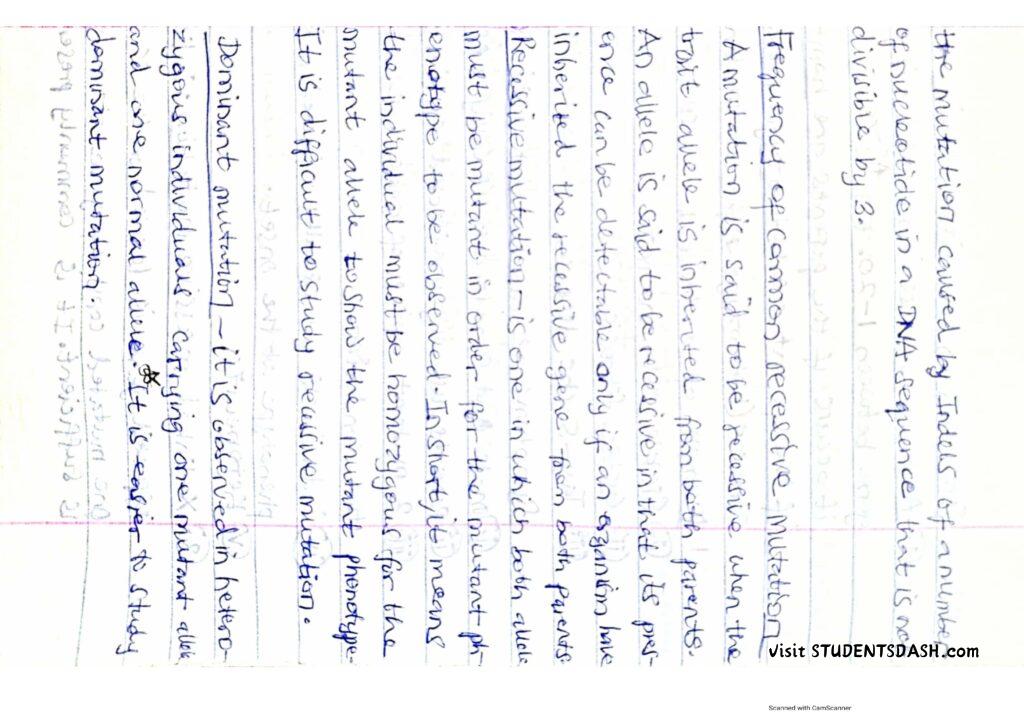 the mutation caused by Indels of a number
of nucleotide in a DNA sequence that is not
divisible by 3.
Frequency of common recessive Mutation
A mutation is said to be recessive when the
trait allele is inherited from both parents.
An allele is said to be recessive in that its pres-
ence can be detectable only if an organism have
inherited the recessive gene from both parents.
Recessive mutation - is one in which both allele
must be mutant in order for the mutant ph-
enotype to be observed. In short, it means
the individual must be homozygous for the
mutant allele to show the mutant phenotype.
It is difficult to study recessive mutation.
Dominant mutation - it is observed in hetero-
zygous individuals carrying one mutant allele
and one normal allele. It is easier to study
dominant mutation.
Visit STUDENTSDASH.com
Scanned with CamScanner